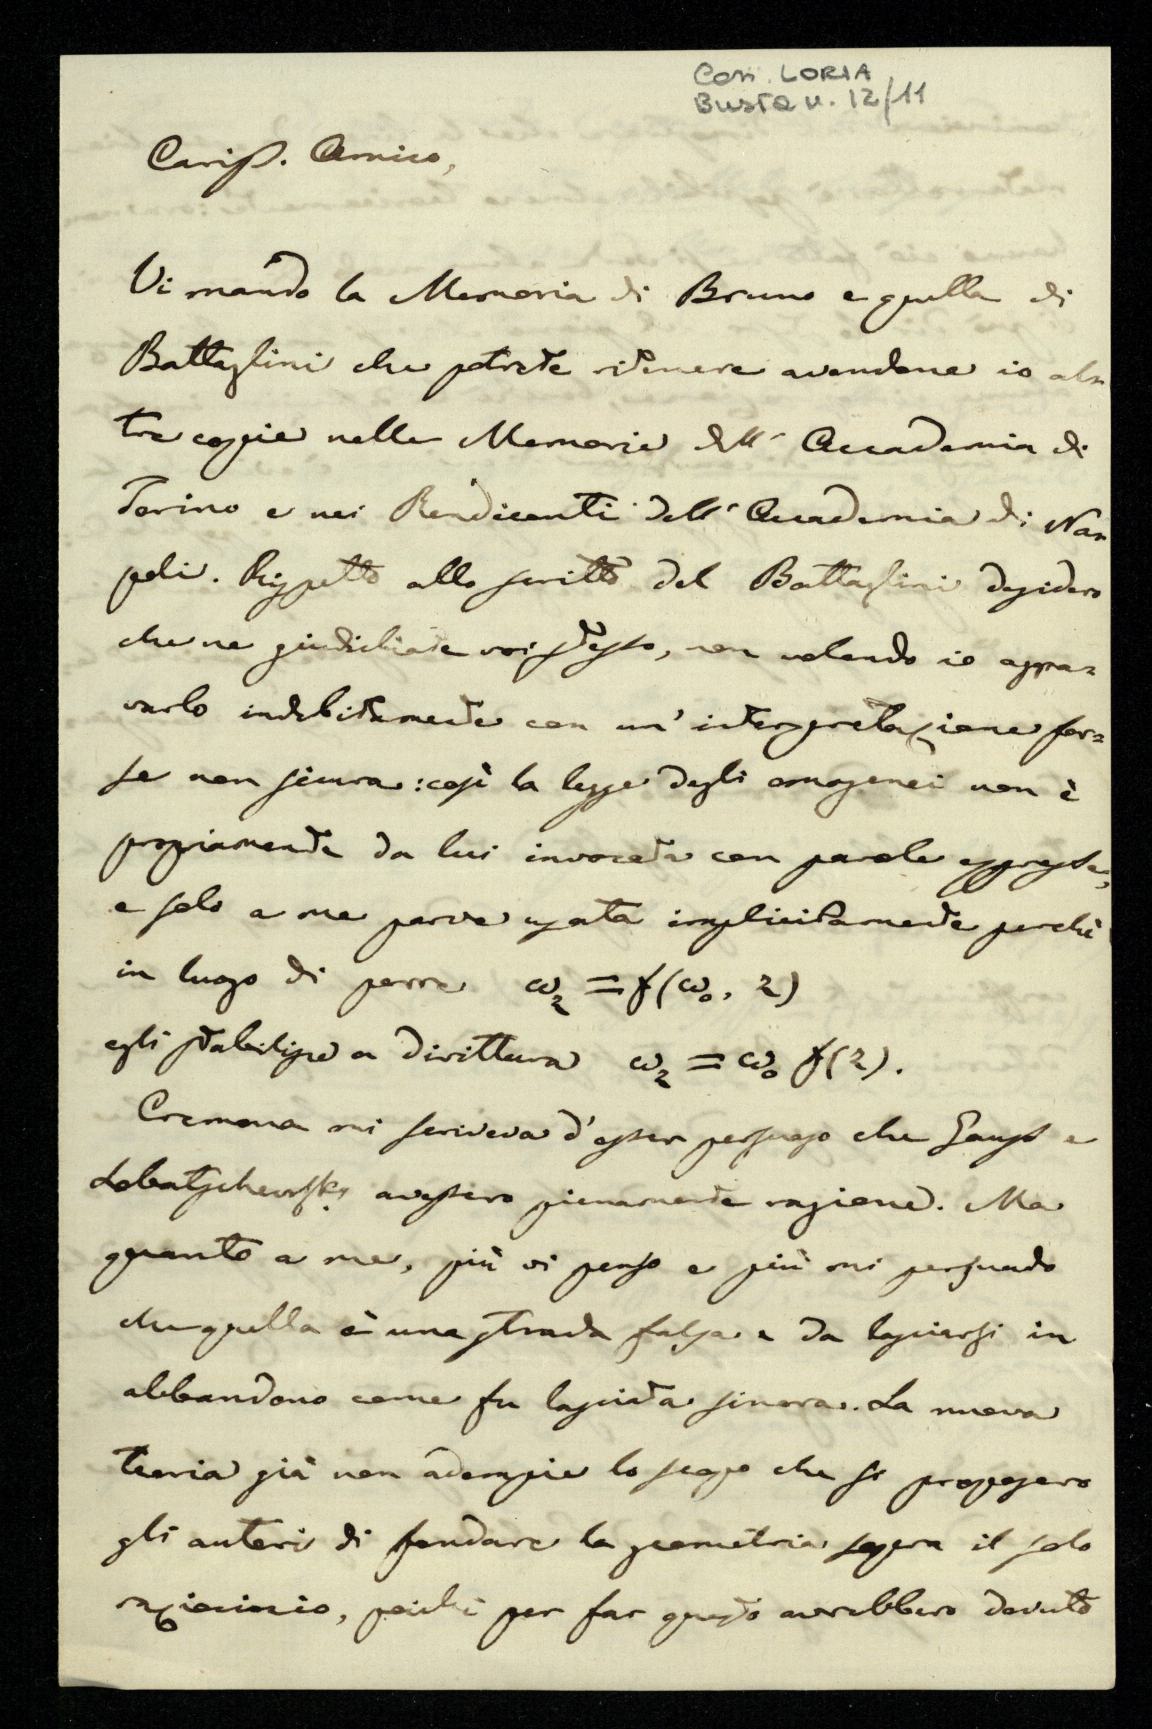 Cas. LORIA
Busta n. 12/11
Cariss. Amico,
Vi mando la Memoria di Bruno e quella di
Battaglini che potrete ritenere avendone io al=
tre copie nelle Memorie dell'Accademia di
Torino e nei Rendiconti dell'Accademia di Na=
poli. Rispetto allo scritto del Battaglini desidero
che ne giudichiate voi stesso, non volendo io aggra=
varlo indebitamente con un'interpretazione for=
se non sicura: così la legge degli omogenei non è
propriamente da lui invocata con parole espresse,
e solo a me parve usata implicitamente perchè
in luogo di porre ω₂ = f(ω₀, 2)
egli stabilisce a dirittura ω₂ = ω₀ f(2).
Cremona mi scriveva d'esser persuaso che Gauss e
Lobatschewsky avessero pienamente ragione. Ma
quanto a me, più vi penso e più mi persuado
che quella è una strada falsa e da lasciarsi in
abbandono come fu lasciata sinora. La nuova
teoria già non adempie lo scopo che si proposero
gli autori di fondare la geometria sopra il solo
raziocinio, poichè per far questo avrebbero dovuto